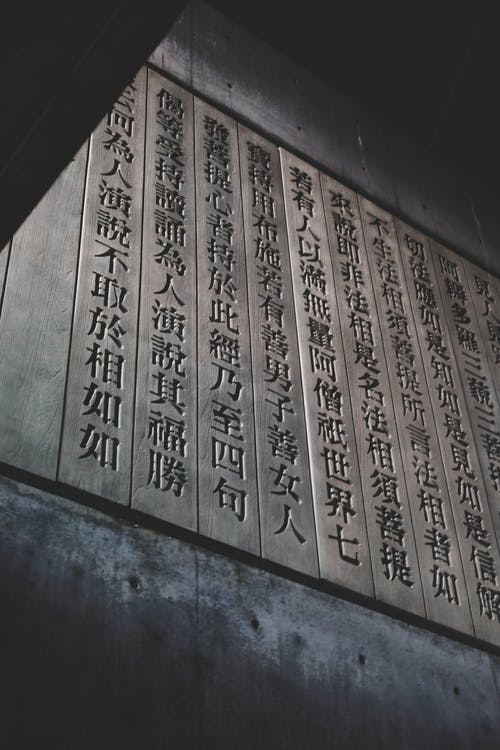 人
阿耨多羅三藐三
切法應如是知如是見如是信解
不生法相須菩提所言法相者如
來說即非法相是名法相須菩提
若有人以滿無量阿僧祇世界七
寶持用布施若有善男子善女人
發菩提心者持於此經乃至四句
偈等受持讀誦為人演說其福勝
何為人演說不取於相如如